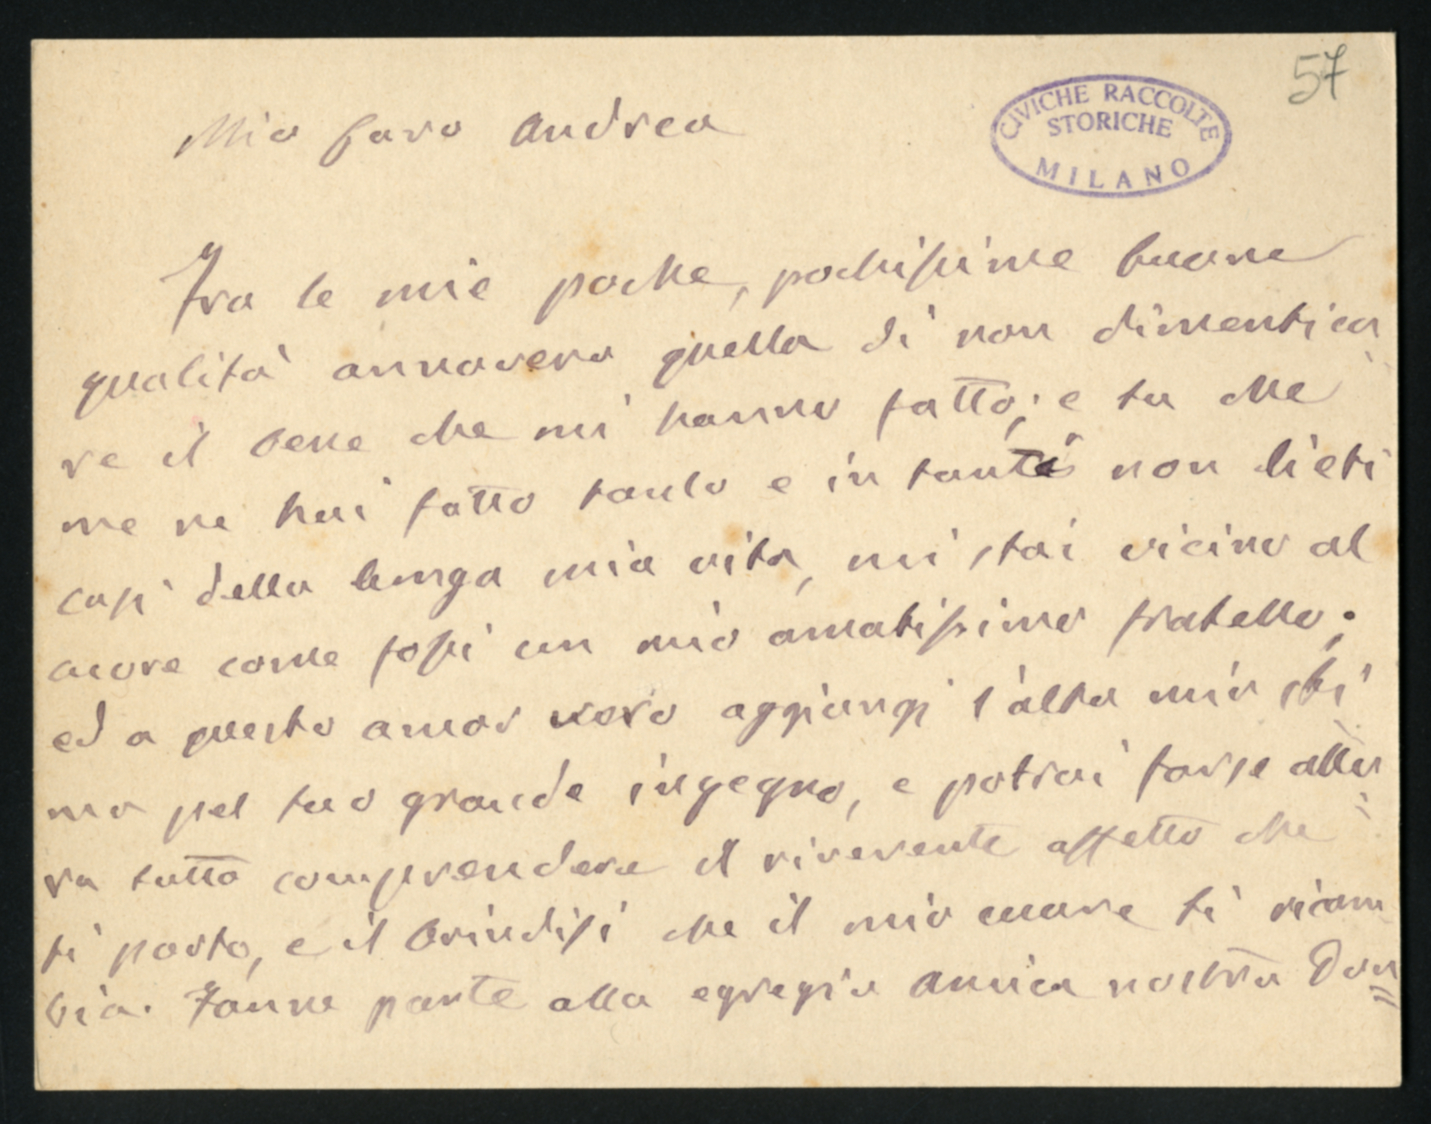 57
CIVICHE RACCOLTE
STORICHE
MILANO
Mio Caro Andrea
Fra le mie poche, pochissime buone
qualità annovero quella di non dimentica
re il bene che mi hanno fatto; e tu che
me ne hai fatto tanto e in tanti non lieti
casi della lunga mia vita, mi stai vicino al
cuore come fossi un mio amatissimo fratello;
ed a questo amor vero aggiungi l'alta mia sti
ma pel tuo grande ingegno, e potrai forse allo
ra tutto comprendere il riverente affetto che
ti porto, e il brindisi che il mio cuore ti ricam
bia. Fanne parte alla egregia amica nostra Don